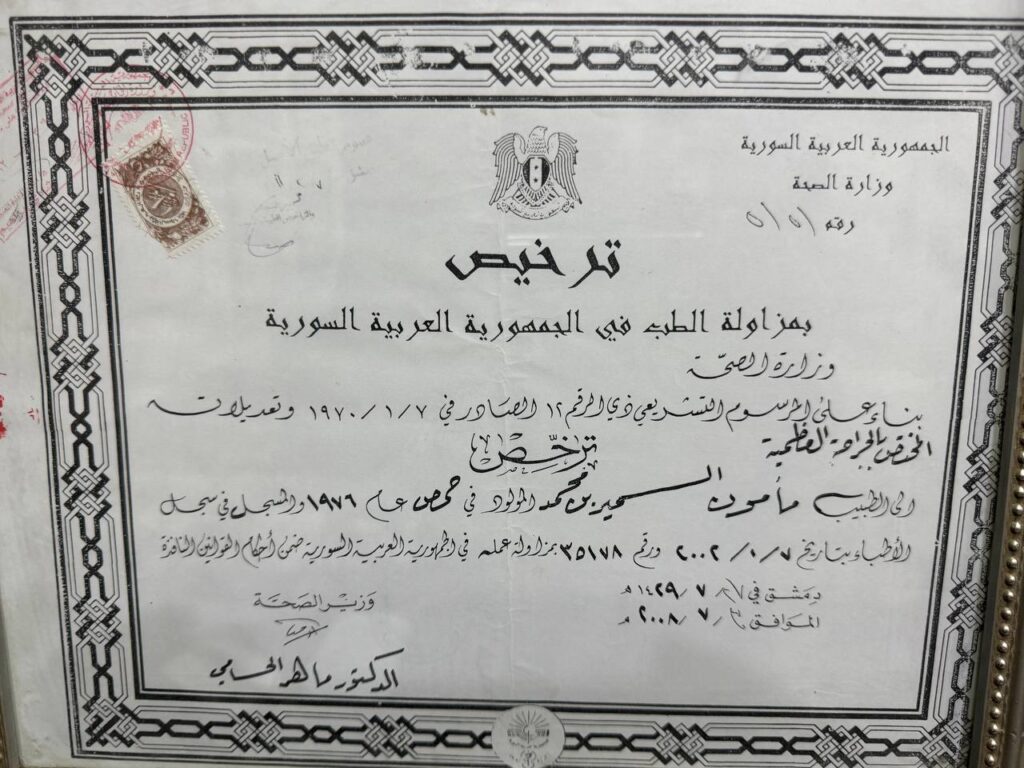 الجمهورية العربية السورية
وزارة الصحة
رقم
ترخيص
بمزاولة الطب في الجمهورية العربية السورية
وزارة الصحّة
بناء على المرسوم التشريعي ذي الرقم ١٢ الصادر في ١٩٧٠/١/٧ وتعديلاته
المختص بالجراحة العظمية
ترخّص
الى الطبيب مأمون السمير بن محمد المولود في حمص عام ١٩٧٦ والمسجل في سجل
الأطباء بتاريخ ٢٠٠٢/١٠/٧ ورقم ٣٥١٧٨ بمزاولة عمله في الجمهورية العربية السورية ضمن أحكام القوانين النافذة
دمشق في ١٤٢٩/٧/ هـ
الموافق ٢٠٠٨/٧/ م
وزير الصحة
الدكتور ماهر الحسامي